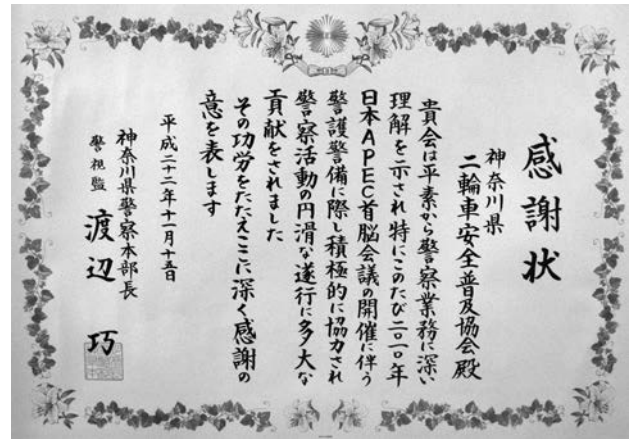 感謝状
神奈川県
二輪車安全普及協会殿
貴会は平素から警察業務に深い
理解を示され特にこのたび二〇一〇年
日本APEC首脳会議の開催に伴う
警護警備に際し積極的に協力され
警察活動の円滑な遂行に多大な
貢献をされました
その功労をたたえここに深く感謝の
意を表します
平成二十二年十一月十五日
神奈川県警察本部長
警視監 渡辺 巧